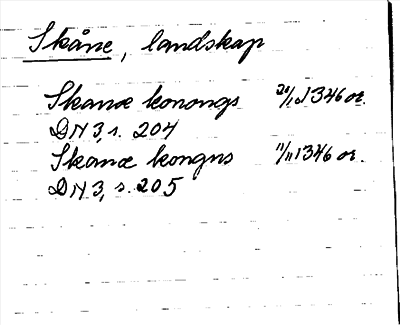 Skåne, landskap
Skanæ konongs 1346 or.
DN 3, s. 204
Skanæ kongns 11/11 1346 or.
DN 3, s. 205